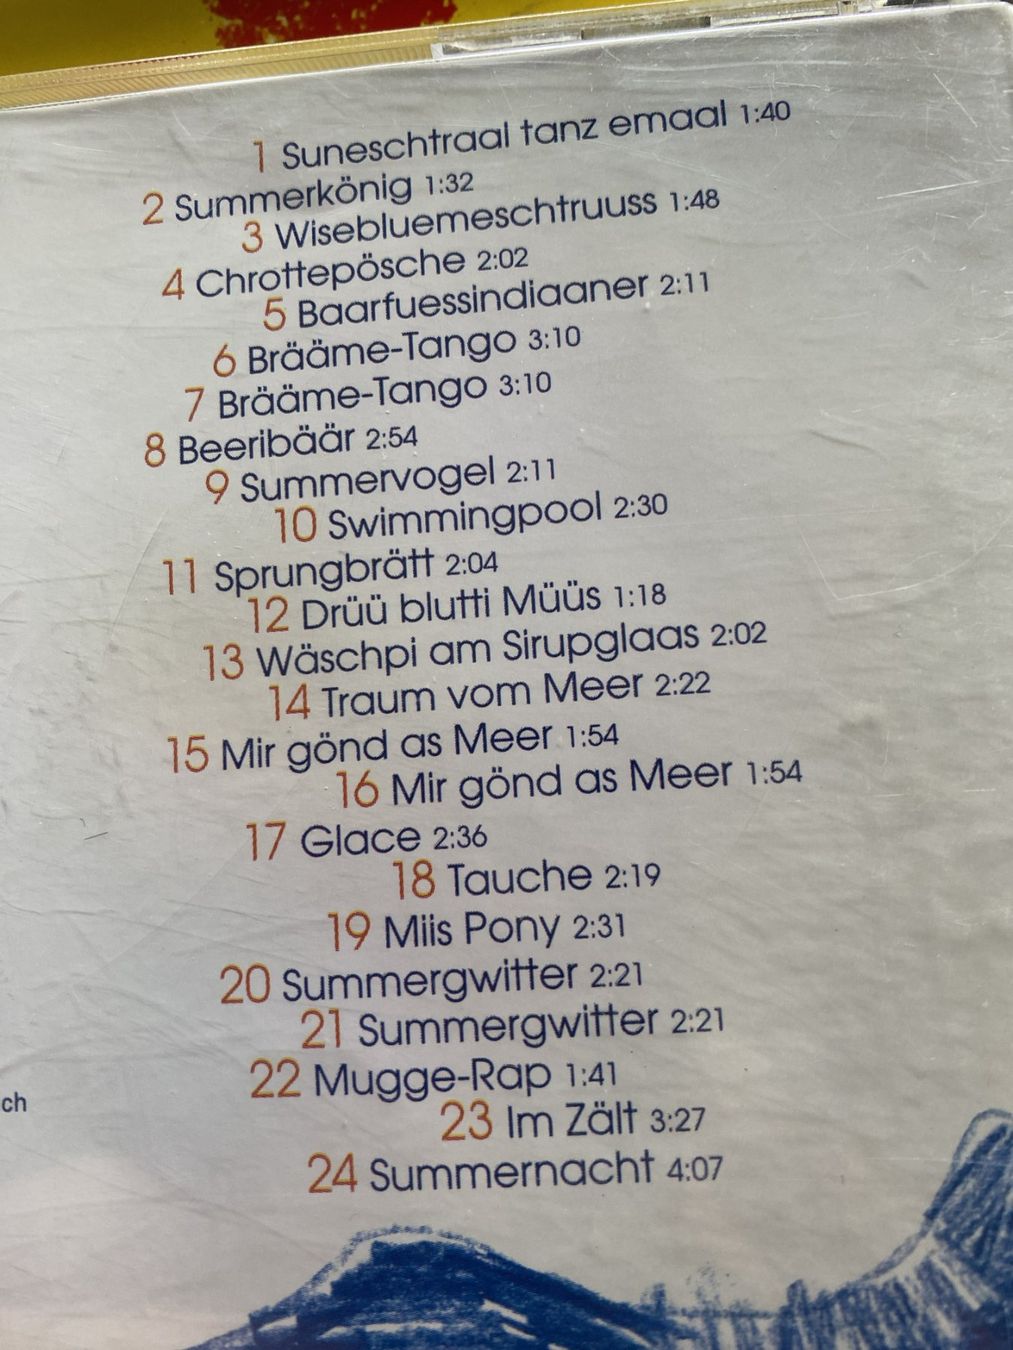 1 Suneschtraal tanz emaal 1:40
2 Summerkönig 1:32
3 Wisebluemeschtruuss 1:48
4 Chrottepösche 2:02
5 Baarfuessindiaaner 2:11
6 Brääme-Tango 3:10
7 Brääme-Tango 3:10
8 Beeribäär 2:54
9 Summervogel 2:11
10 Swimmingpool 2:30
11 Sprungbrätt 2:04
12 Drüü blutti Müüs 1:18
13 Wäschpi am Sirupglaas 2:02
14 Traum vom Meer 2:22
15 Mir gönd as Meer 1:54
16 Mir gönd as Meer 1:54
17 Glace 2:36
18 Tauche 2:19
19 Miis Pony 2:31
20 Summergwitter 2:21
21 Summergwitter 2:21
22 Mugge-Rap 1:41
ch
23 Im Zält 3:27
24 Summernacht 4:07